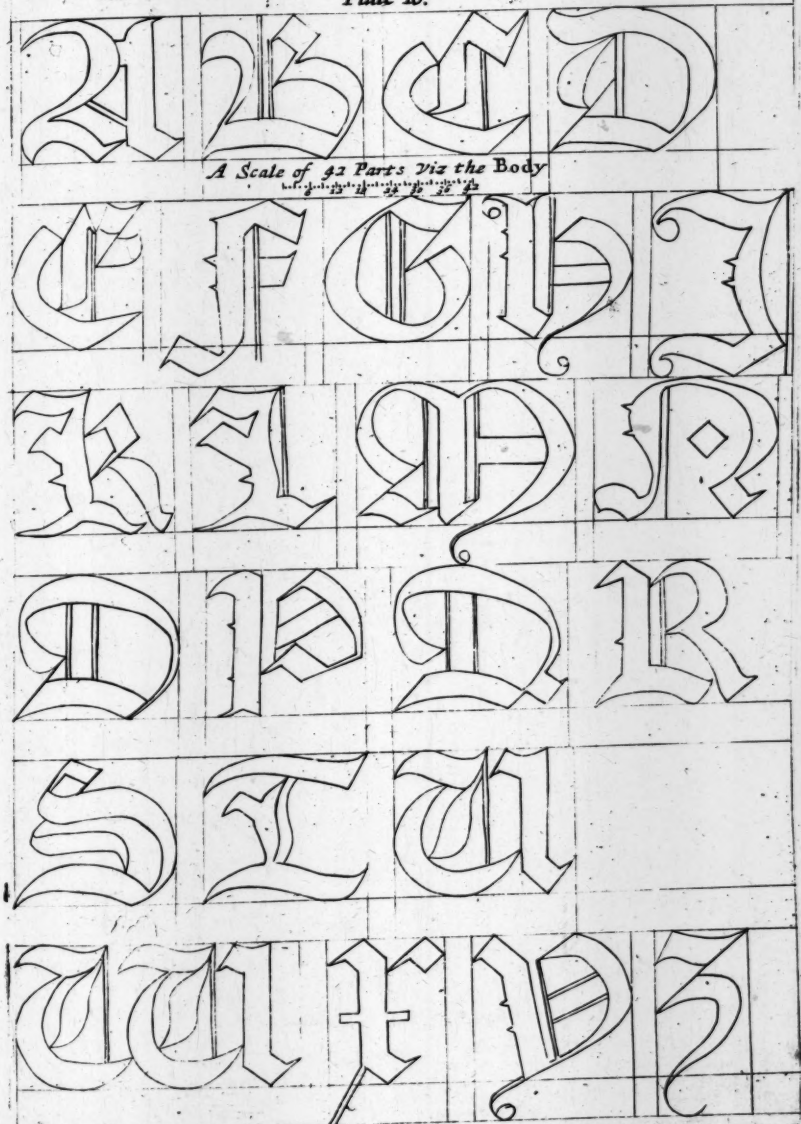 Plate
A B C D
A Scale of 42 Parts viz the Body
6 12 18 24 30 36 42
E F G H I
K L M N
O P Q R
S T U
W X Y Z